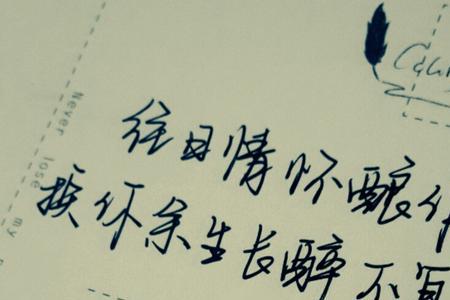 Never lose my
往日情怀酿作
换你余生长醉不